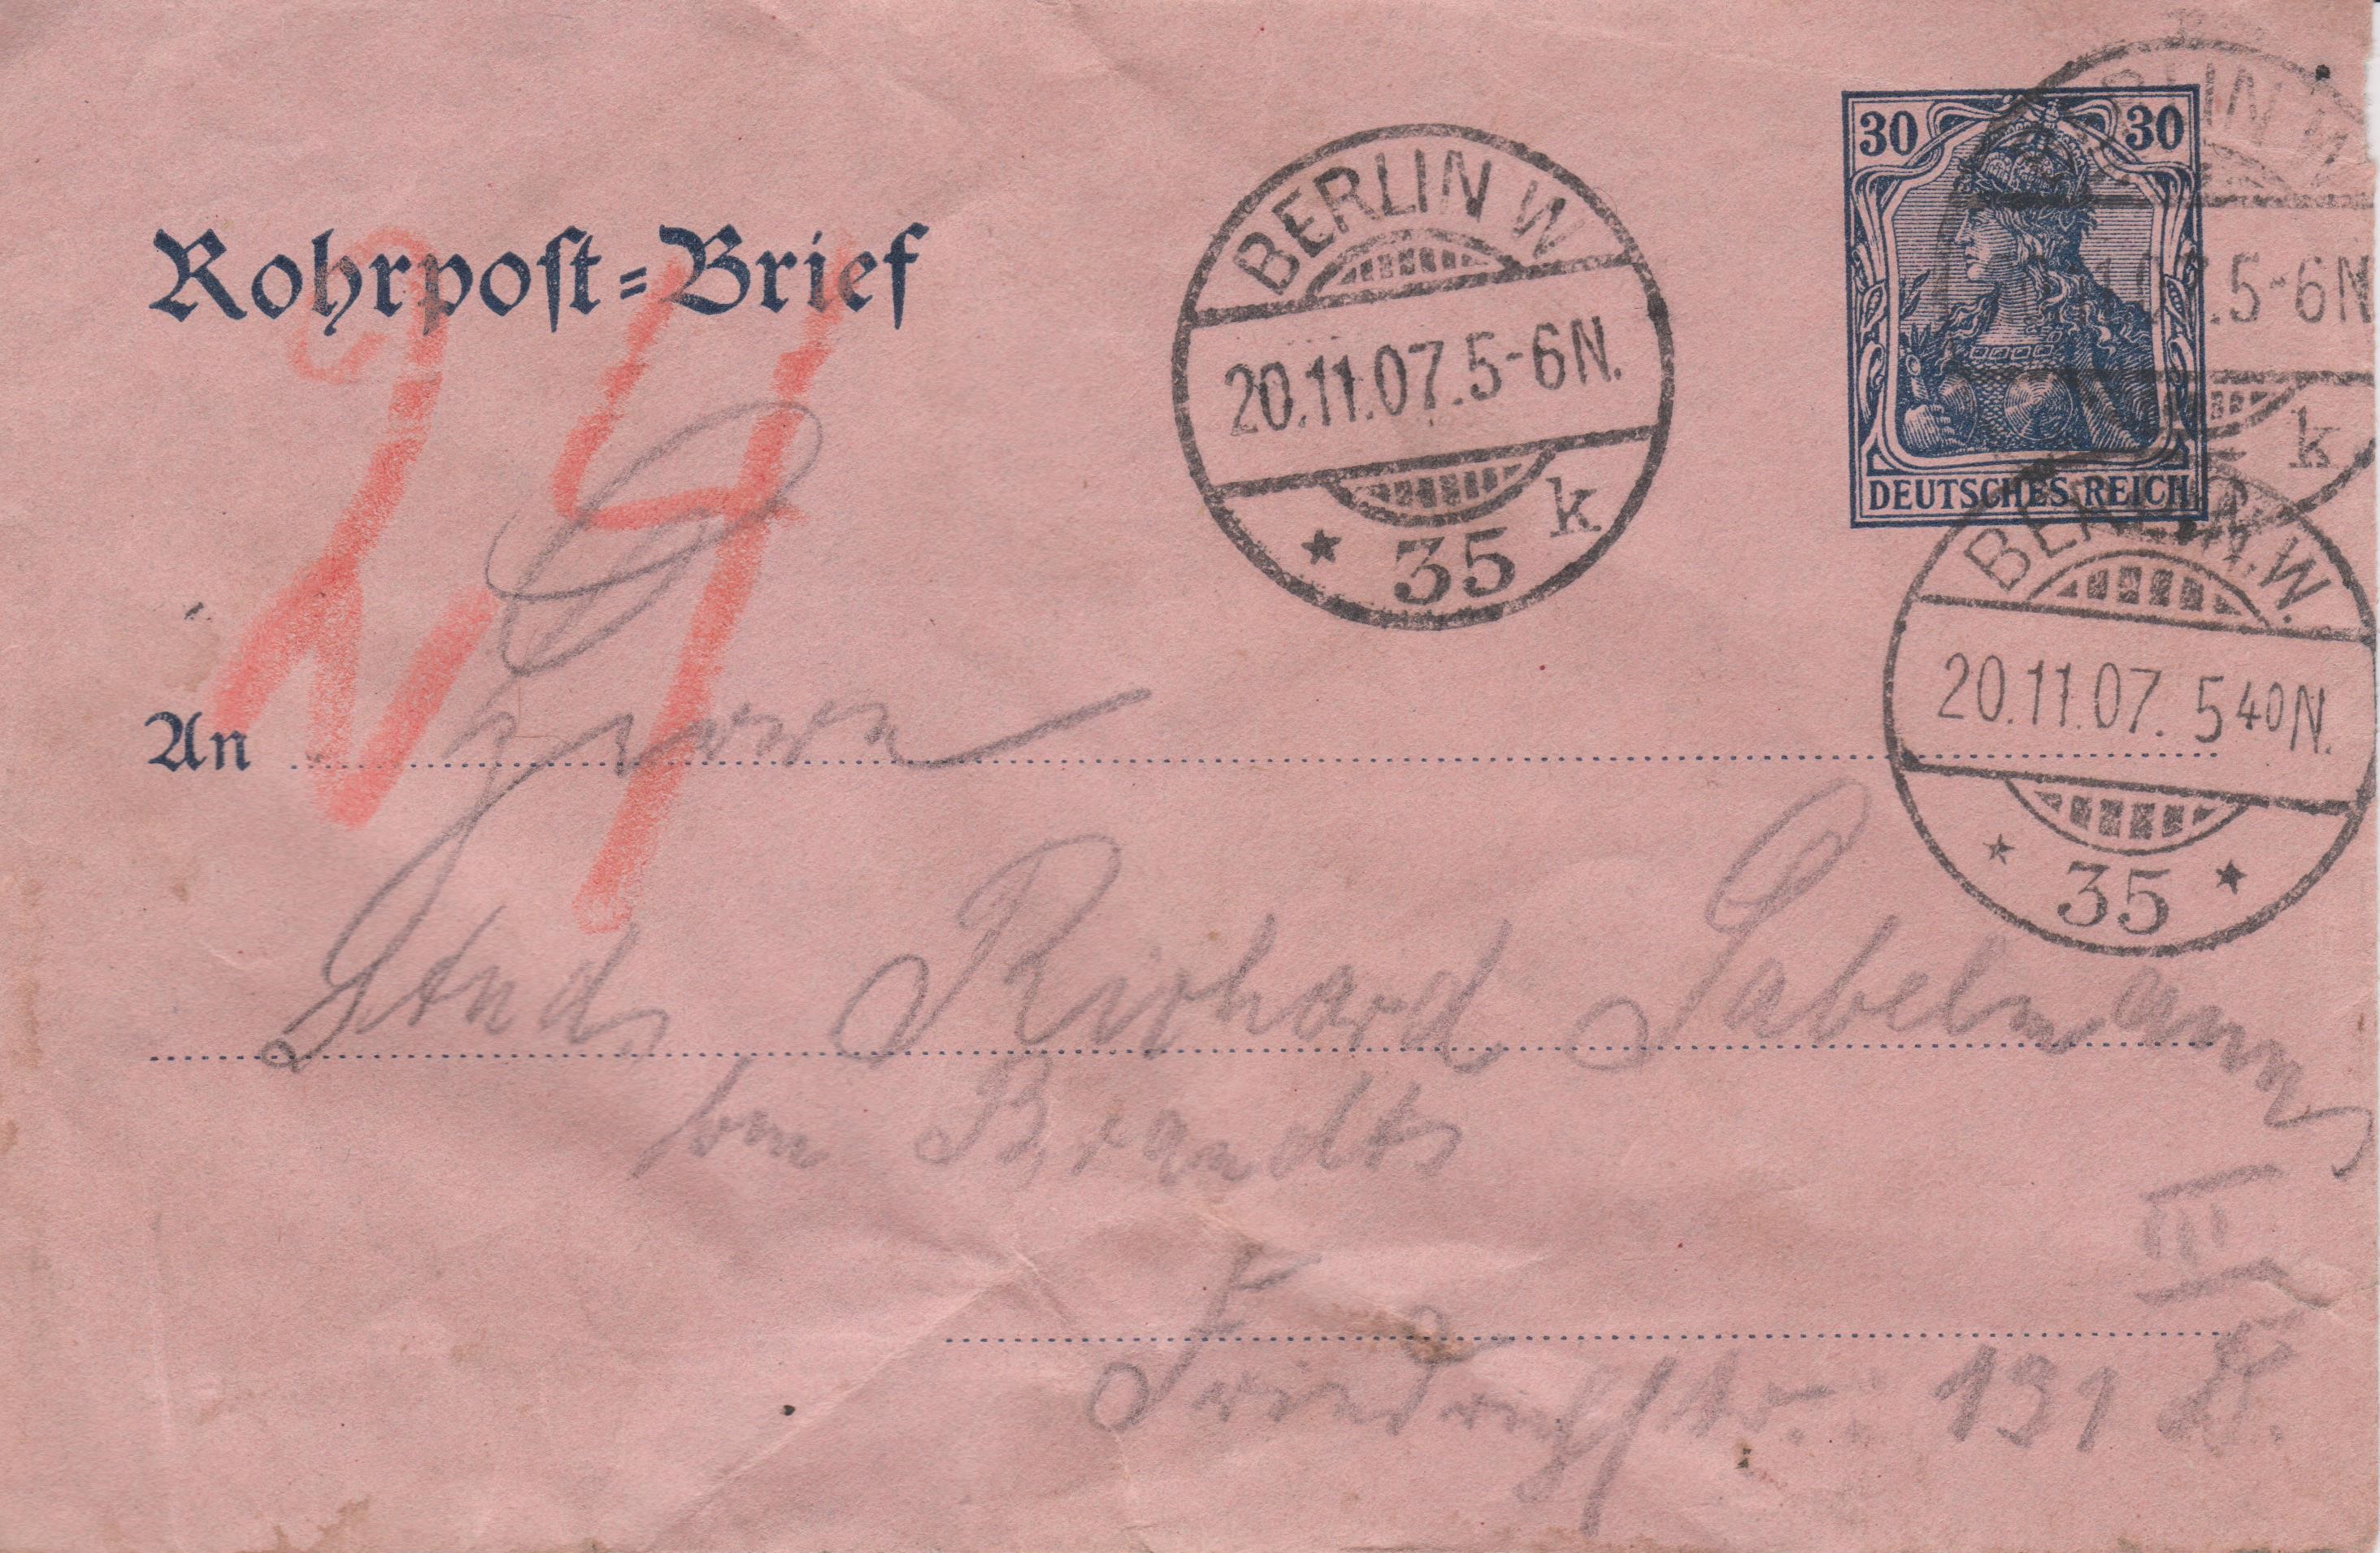 30 30
DEUTSCHES REICH
BERLIN W.
5-6N
k
Rohrpoſt=Brief
BERLIN W.
20.11.07.5-6N.
* 35 k
24
BERLIN.W.
20.11.07. 5 40N.
* 35 *
An Herrn
Stud. Richard Gabelmann
bei Brandts
III
Friedrichstr. 131 D.